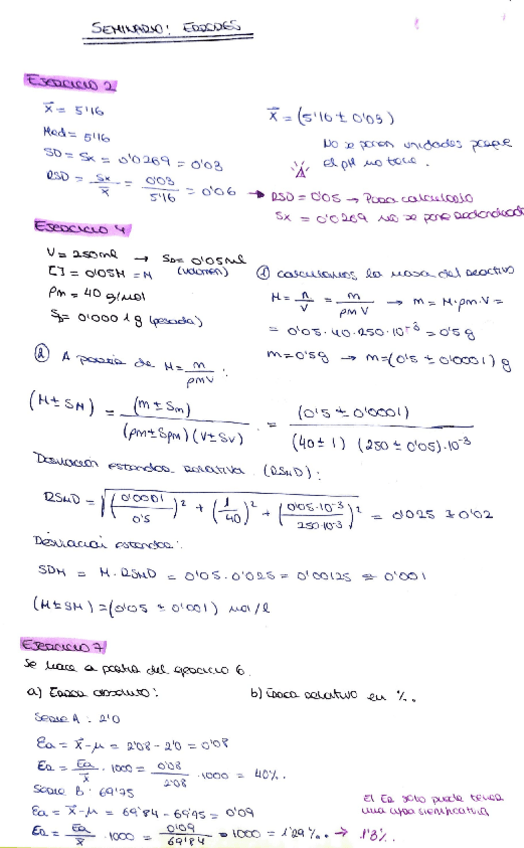 SEMINARIO: ERRORES
EJERCICIO 2
x̄ = 5'16
Med = 5'16
SD = Sx = 0'0269 = 0'03
RSD = Sx/x̄ = 0'03/5'16 = 0'06 → RSD = 0'05 → Para calcularlo
Sx = 0'0269 no se pone redondeado
x̄ = (5'16 ± 0'03)
No se ponen unidades porque
el pH no tiene.
EJERCICIO 4
V = 250 ml → Sv = 0'05 ml
(volumen)
[ ] = 0'05M = M
pm = 40 g/mol
S = 0'0001 g (pesada)
① Calculamos la masa del reactivo
M = n/V = m/(pm V) → m = M·pm·V =
= 0'05·40·250·10⁻³ = 0'5 g
m = 0'5 g → m = (0'5 ± 0'0001) g
② A partir de M = m/(pm V) :
(M ± SM) = (m ± Sm)/((pm ± Spm)(V ± Sv)) = (0'5 ± 0'0001)/((40 ± 1)(250 ± 0'05)·10⁻³
Desviación estándar relativa (RSMD):
RSMD = √((0'0001/0'5)² + (1/40)² + (0'05·10⁻³/250·10⁻³)²) = 0'025 ≈ 0'02
Desviación estándar:
SDM = M·RSMD = 0'05·0'025 = 0'00125 ≈ 0'001
(M ± SM) = (0'05 ± 0'001) mol/l
EJERCICIO 7
Se hace a partir del ejercicio 6.
a) Error absoluto:
b) Error relativo en ‰.
Serie A: 2'0
Ea = x̄ - μ = 2'08 - 2'0 = 0'08
= Ea/x̄ · 1000 = 0'08/2'08 · 1000 = 40‰.
Serie B: 69'75
Ea = x̄ - μ = 69'84 - 69'75 = 0'09
= Ea/x̄ · 1000 = 0'09/69'84 · 1000 = 1'29‰. → 1'3‰.
El Ea solo puede tener
una cifra significativa